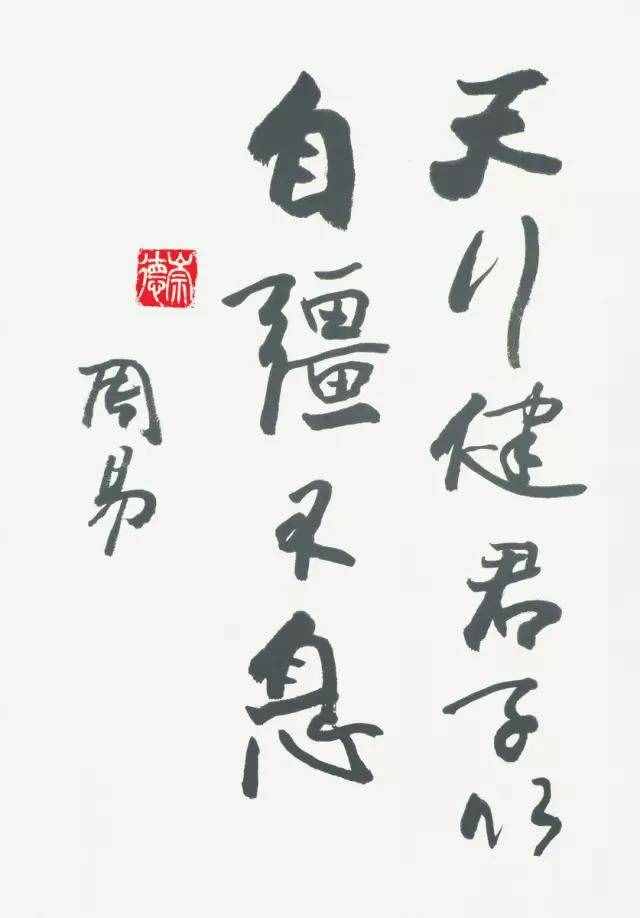 天行健君子以
自彊不息
崇德
周易